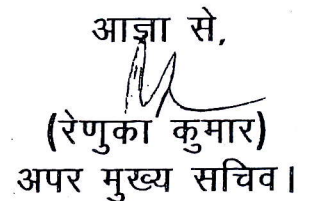 आज्ञा से,
(रेणुका कुमार)
अपर मुख्य सचिव।